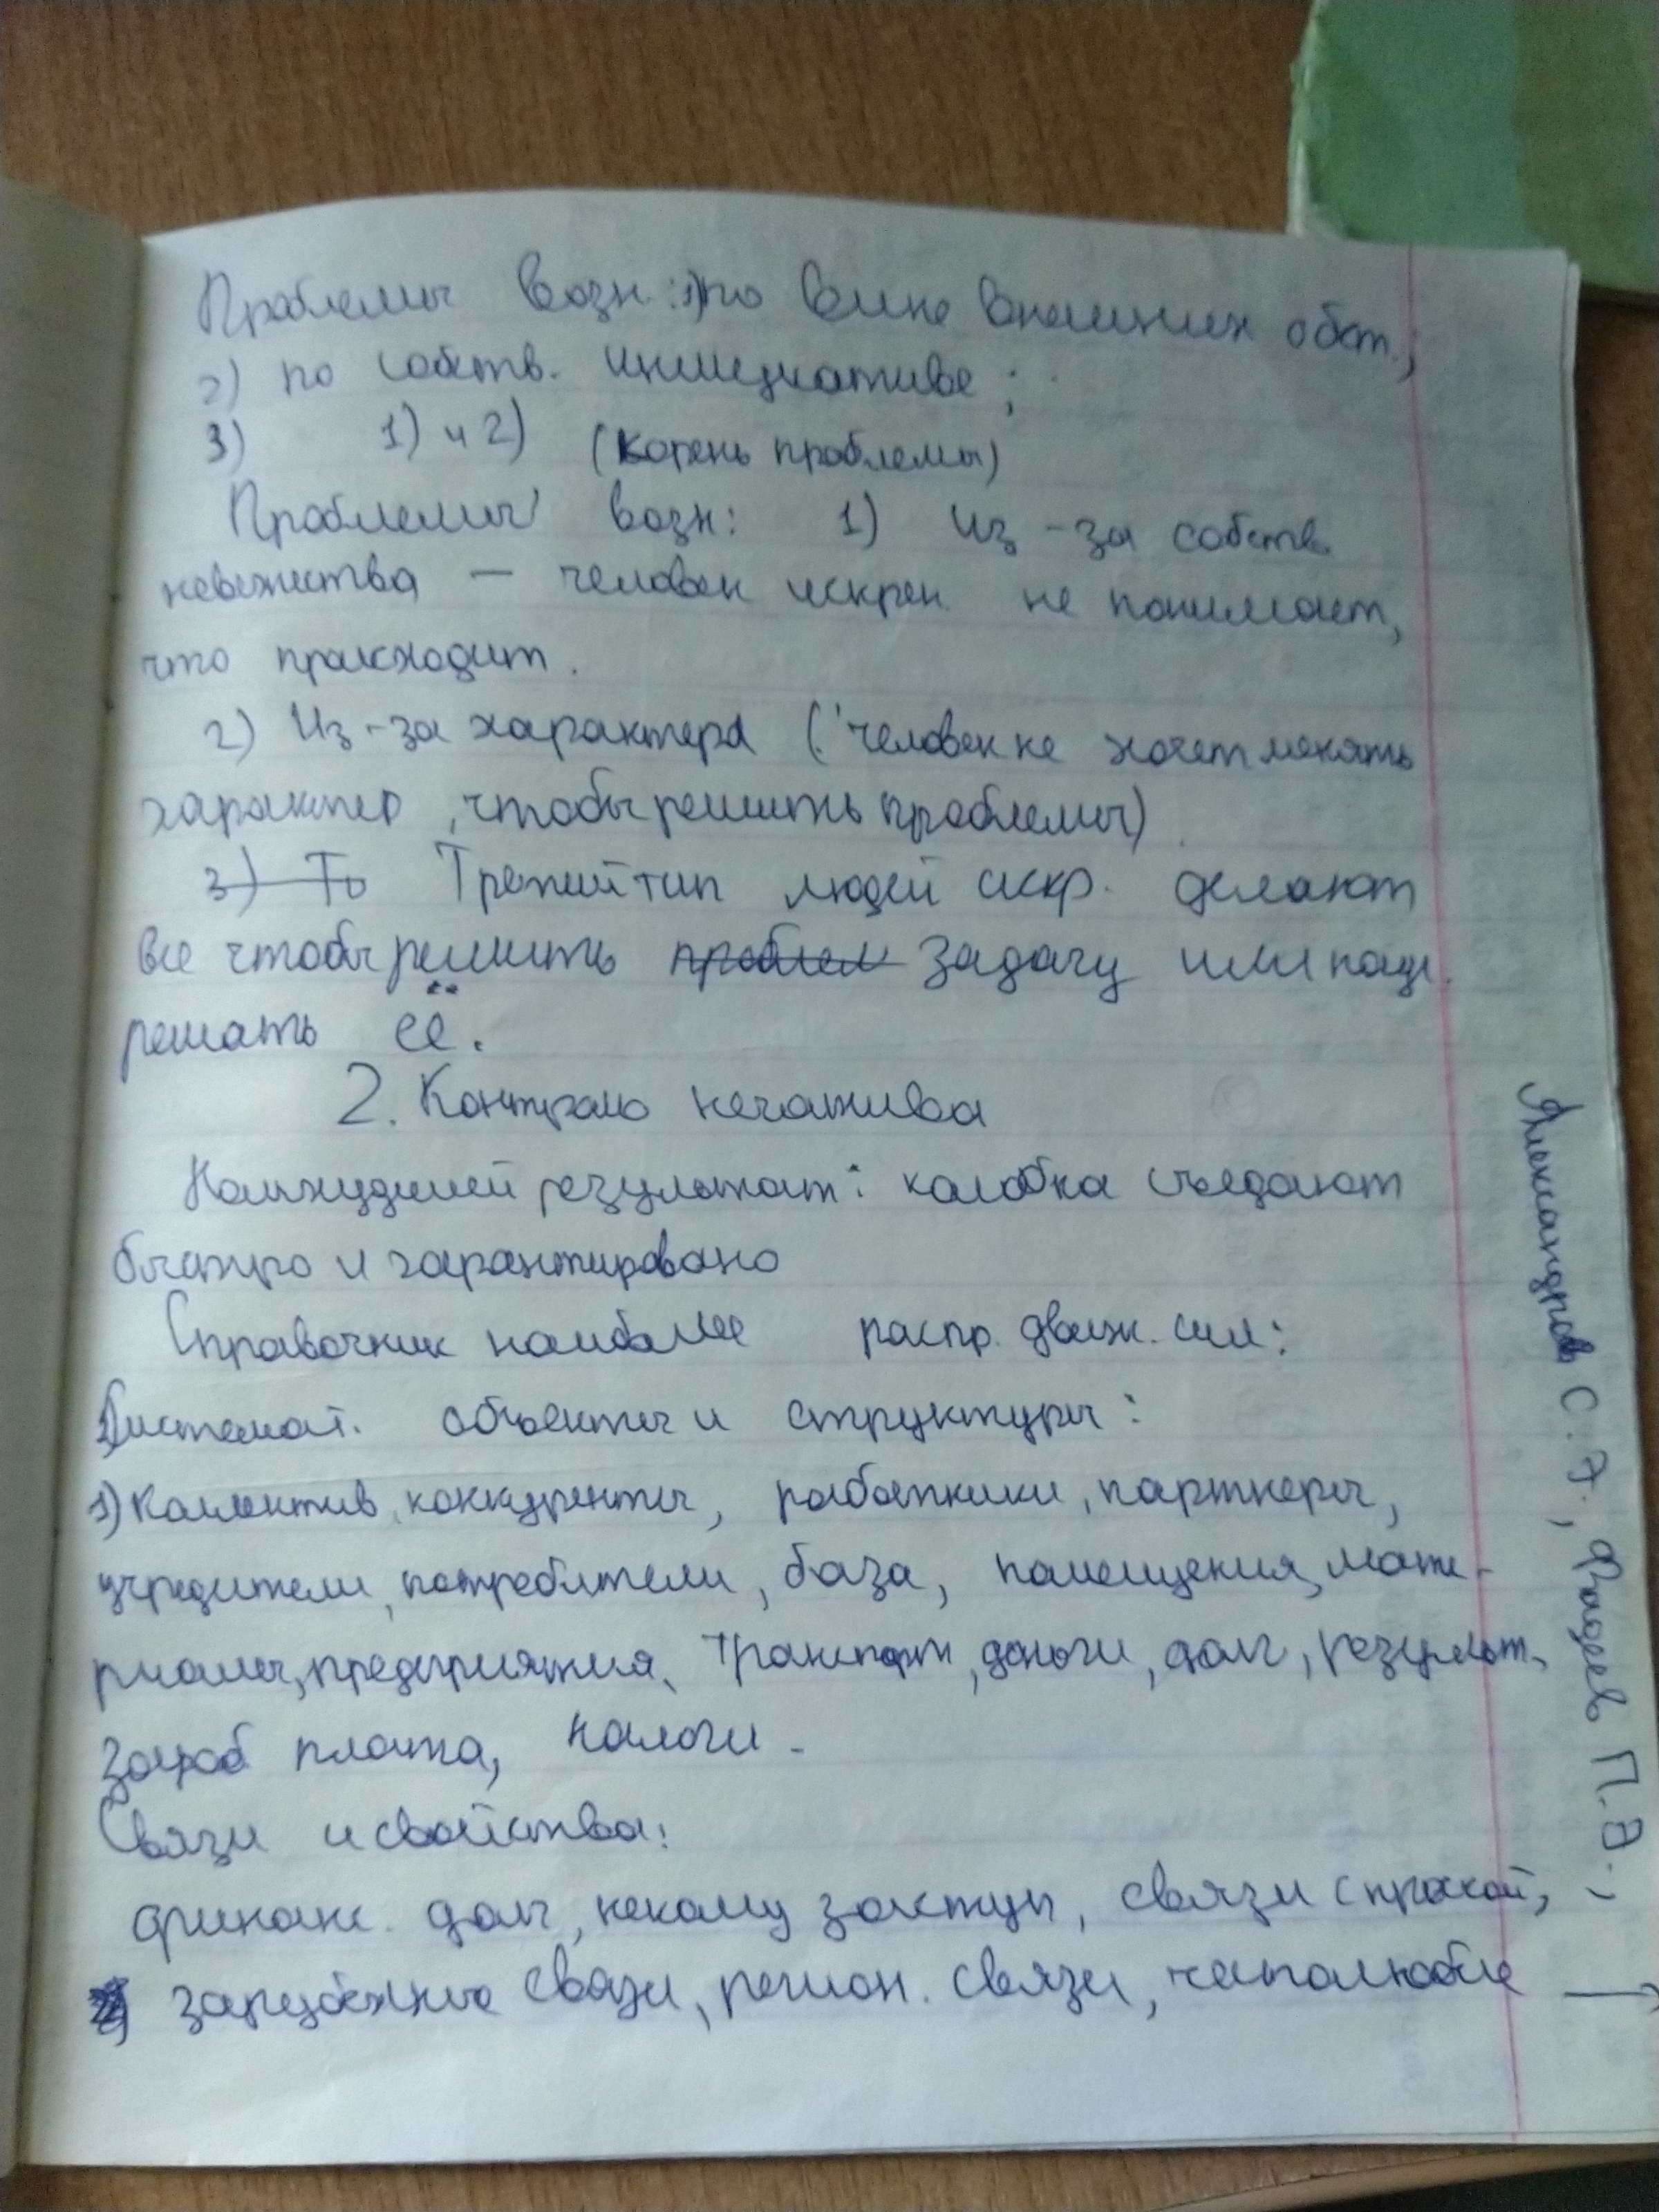 Проблемы возн.: 1) по вине внешних обст.;
2) по собств. инициативе;
3) 1) и 2) (корень проблемы)
Проблемы возн: 1) Из-за собств.
невежества — человек искрен. не понимает,
что происходит.
2) Из-за характера (человек не хочет менять
характер, чтобы решить проблемы)
3) То Третий тип людей искр. делают
все чтобы решить проблем задачу или
решать её.
2. Контроль негатива
Наихудший результат: колобка съедают
быстро и гарантировано
Справочник наиболее распр. движ. сил:
1) Системат. объекты и структуры:
1) Коллектив, конкуренты, работники, партнеры,
учредители, потребители, база, помещения, мате-
риалы, предприятия, транспорт, деньги, долг, результ.,
зараб плата, налоги.
Связи и свойства:
финанс. долг, связи с
зарубежные связи, регион. связи,
Александров С.Э., Фадеев П.Э.,